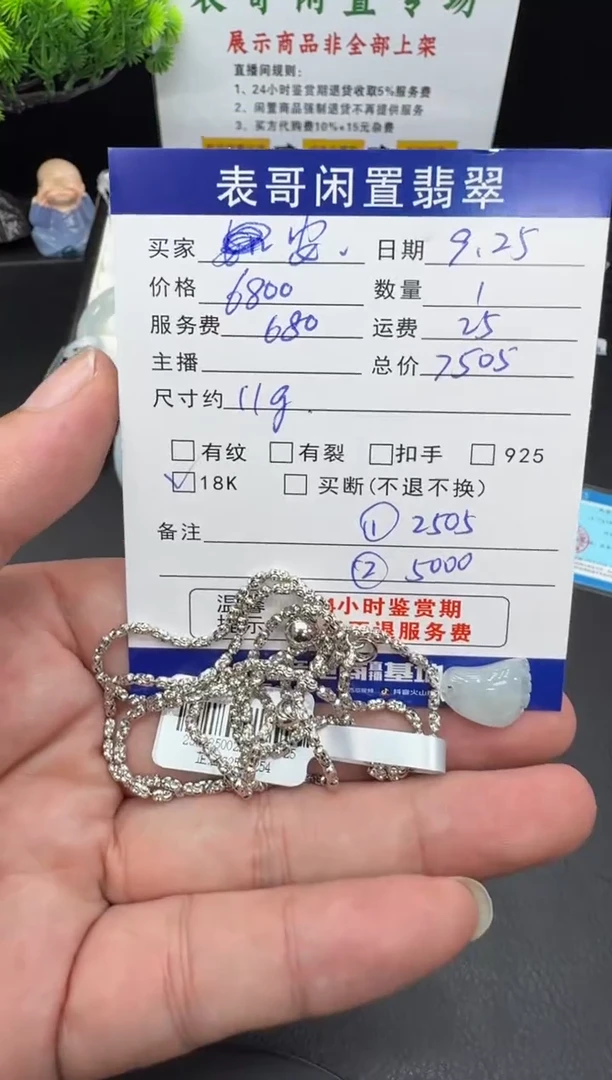 表哥闲置专场
展示商品非全部上架
直播间规则:
1、24小时鉴赏期退货收取5%服务费
2、闲置商品强制退货不再提供服务
3、买方代购费10%+15元杂费
表哥闲置翡翠
买家 安. 日期 9.25
价格 6800 数量 1
服务费 680 运费 25
主播 总价 7505
尺寸约 11g.
有纹 有裂 扣手 925
18K 买断(不退不换)
备注 ① 2505
② 5000
温馨 4小时鉴赏期
提示 不退服务费